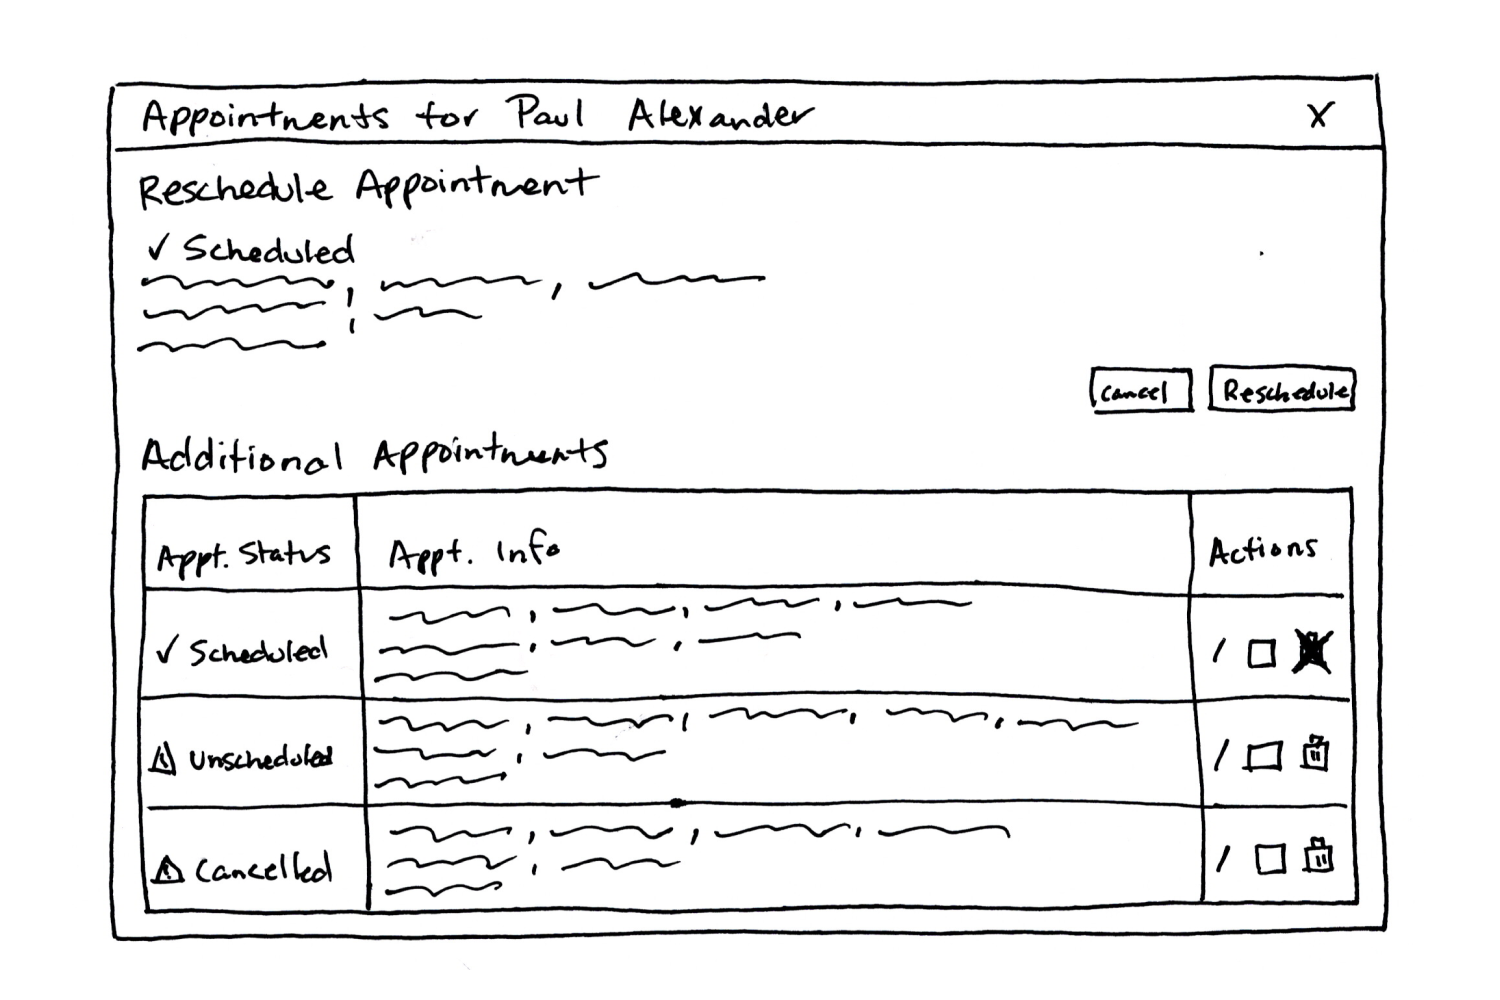 Appointments for Paul Alexander X
Reschedule Appointment
✓ Scheduled
Cancel Reschedule
Additional Appointments
Appt. Status Appt. Info Actions
✓ Scheduled
Unscheduled
Cancelled